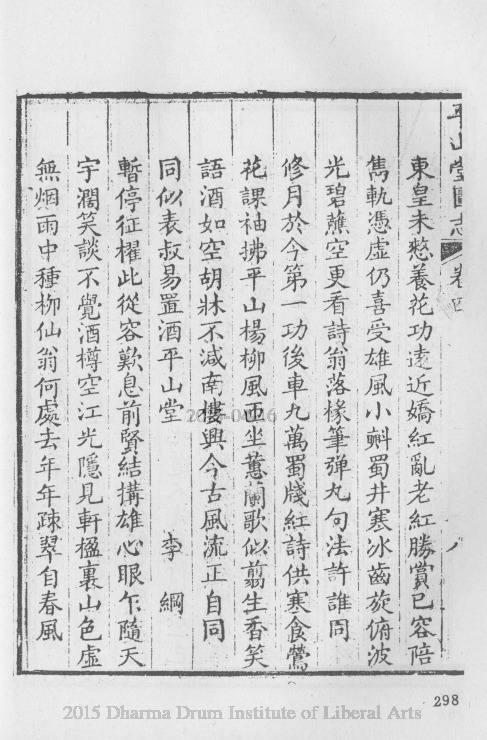 平山堂圖志 卷四 八
東皇未愁養花功遠近嬌紅亂老紅勝賞已容陪
雋軌憑虛仍喜受雄風小㪷蜀井寒冰齒旋俯波
光碧蘸空更看詩翁落椽筆彈丸句法許誰同
修月於今第一功後車九萬蜀牋紅詩供寒食鶯
花課袖拂平山楊柳風匝坐蕙蘭歌似翦生香笑
語酒如空胡牀不減南樓興今古風流正自同
同似表叔易置酒平山堂 李 綱
暫停征櫂此從容歎息前賢結搆雄心眼乍隨天
宇濶笑談不覺酒樽空江光隱見軒楹裏山色虛
無烟雨中種柳仙翁何處去年年疎翠自春風
298
2015 Dharma Drum Institute of Liberal Arts